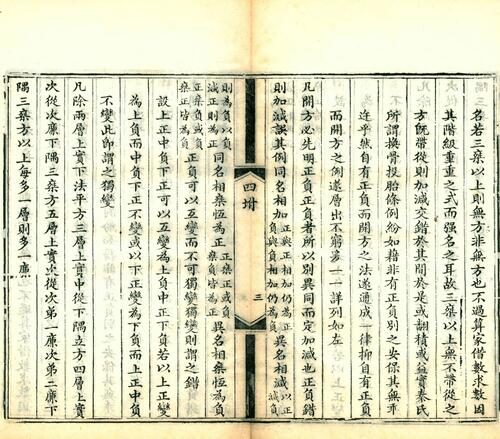 名若三椉方則無方非方也不過算家借數求數因
其階級重重之式而强名之耳故三椉以上無不帶從之
方旣帶從則加減交錯於其間於是或翻積或益實秦氏
所謂換骨投胎條例紛如藉非有正負別之安保其無乖
迕乎然自有正負而開方之法遂通成一律抑自有正負
而開方之例遂層出不窮多一一詳列如左
凡開方必先明正負正負者所以別異同而定加減也正負錯
則加減誤其例同名相加正與正相加仍為正負與負相加仍為負異名相減以正
減正則為負以負減負則為正同名相椉恆為正正椉正或負椉負皆為正異名相椉恆為負
正椉負或負椉正皆為負正負可以互變而不可獨變獨變則謂之錯
設上正中負下正可以互變為上負中正下負若以上正變
為上負中負下正不變或以下正變為下負而上正中負
不變此即謂之獨變
凡除兩層上實下法平方三層上實中從下隅立方四層上實
次從次廉下隅三椉方五層上實次從次第一廉次第二廉下
隅三椉方以上每多一層則多一廉
四卌
三